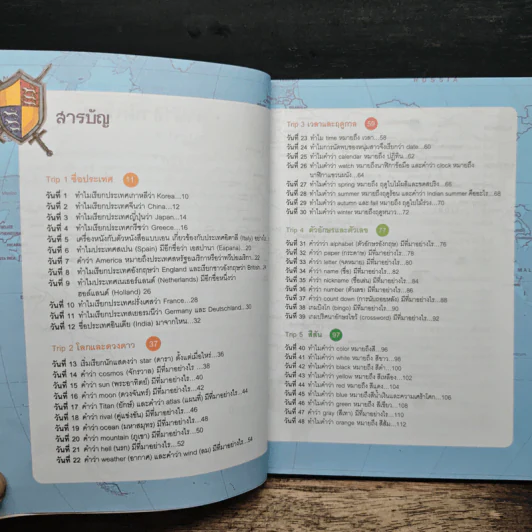 สารบัญ
Trip 1 ชื่อประเทศ 11
วันที่ 1 ทำไมเรียกประเทศเกาหลีว่า Korea...10
วันที่ 2 ทำไมเรียกประเทศจีนว่า China...12
วันที่ 3 ทำไมเรียกประเทศญี่ปุ่นว่า Japan...14
วันที่ 4 ทำไมเรียกประเทศกรีซว่า Greece...16
วันที่ 5 เครื่องหนังกับตัวหนังสือแบบเอน เกี่ยวข้องกับประเทศอิตาลี (Italy)
วันที่ 6 ทำไมประเทศสเปน (Spain) มีอีกชื่อว่า เอสปาญา (España)
วันที่ 7 คำว่า America หมายถึงประเทศสหรัฐอเมริกาหรือทวีปอเมริกา...22
วันที่ 8 ทำไมเรียกประเทศอังกฤษว่า England และเรียกชาวอังกฤษว่า British
วันที่ 9 ทำไมประเทศเนเธอร์แลนด์ (Netherlands) มีอีกชื่อหนึ่งว่า
ฮอลแลนด์ (Holland) 26
วันที่ 10 ทำไมเรียกประเทศฝรั่งเศสว่า France...28
วันที่ 11 ทำไมเรียกประเทศเยอรมนีว่า Germany และ Deutschland...30
วันที่ 12 ชื่อประเทศอินเดีย (India) มาจากไหน...32
Trip 2 โลกและดวงดาว 37
วันที่ 13 เริ่มเรียกนักแสดงว่า star (ดารา) ตั้งแต่เมื่อไหร่...36
วันที่ 14 คำว่า cosmos (จักรวาล) มีที่มาอย่างไร...38
วันที่ 15 คำว่า sun (พระอาทิตย์) มีที่มาอย่างไร...40
วันที่ 16 คำว่า moon (ดวงจันทร์) มีที่มาอย่างไร...42
วันที่ 17 คำว่า Titan (ยักษ์) และคำว่า atlas (แผนที่) มีที่มาอย่างไร...44
วันที่ 18 คำว่า rival (คู่แข่งขัน) มีที่มาอย่างไร...46
วันที่ 19 คำว่า ocean (มหาสมุทร) มีที่มาอย่างไร...48
วันที่ 20 คำว่า mountain (ภูเขา) มีที่มาอย่างไร...50
วันที่ 21 คำว่า hell (นรก) มีที่มาอย่างไร...52
วันที่ 22 คำว่า weather (อากาศ) และคำว่า wind (ลม) มีที่มาอย่างไร...54
Trip 3 เวลาและฤดูกาล 59
วันที่ 23 ทำไม time หมายถึง เวลา...58
วันที่ 24 ทำไมการนัดพบของหนุ่มสาวจึงเรียกว่า date...60
วันที่ 25 ทำไมคำว่า calendar หมายถึง ปฏิทิน...62
วันที่ 26 ทำไมคำว่า watch หมายถึงนาฬิกาข้อมือ และคำว่า clock หมายถึง
นาฬิกาแขวนผนัง...64
วันที่ 27 ทำไมคำว่า spring หมายถึง ฤดูใบไม้ผลิและขดสปริง...66
วันที่ 28 ทำไมคำว่า summer หมายถึงฤดูร้อน และคำว่า Indian summer คืออะไร...68
วันที่ 29 ทำไมคำว่า autumn และ fall หมายถึง ฤดูใบไม้ร่วง...70
วันที่ 30 ทำไมคำว่า winter หมายถึงฤดูหนาว...72
Trip 4 ตัวอักษรและตัวเลข 77
วันที่ 31 คำว่า alphabet (ตัวอักษรอังกฤษ) มีที่มาอย่างไร...76
วันที่ 32 คำว่า paper (กระดาษ) มีที่มาอย่างไร...78
วันที่ 33 คำว่า letter (จดหมาย) มีที่มาอย่างไร...80
วันที่ 34 คำว่า name (ชื่อ) มีที่มาอย่างไร...82
วันที่ 35 คำว่า nickname (ชื่อเล่น) มีที่มาอย่างไร...84
วันที่ 36 คำว่า number (ตัวเลข) มีที่มาอย่างไร...86
วันที่ 37 คำว่า count down (การนับถอยหลัง) มีที่มาอย่างไร...88
วันที่ 38 เกมบิงโก (bingo) มีที่มาอย่างไร...90
วันที่ 39 เกมปริศนาอักษรไขว้ (crossword) มีที่มาอย่างไร...92
Trip 5 สีสัน 97
วันที่ 40 ทำไมคำว่า color หมายถึง สี...96
วันที่ 41 ทำไมคำว่า white หมายถึง สีขาว...98
วันที่ 42 ทำไมคำว่า black หมายถึง สีดำ...100
วันที่ 43 ทำไมคำว่า yellow หมายถึง สีเหลือง...102
วันที่ 44 ทำไมคำว่า red หมายถึง สีแดง...104
วันที่ 45 ทำไมคำว่า blue หมายถึงสีน้ำเงินและความเศร้าโศก...106
วันที่ 46 ทำไมคำว่า green หมายถึง สีเขียว...108
วันที่ 47 คำว่า gray (สีเทา) มีที่มาอย่างไร...110
วันที่ 48 ทำไมคำว่า orange หมายถึง สีส้ม...112